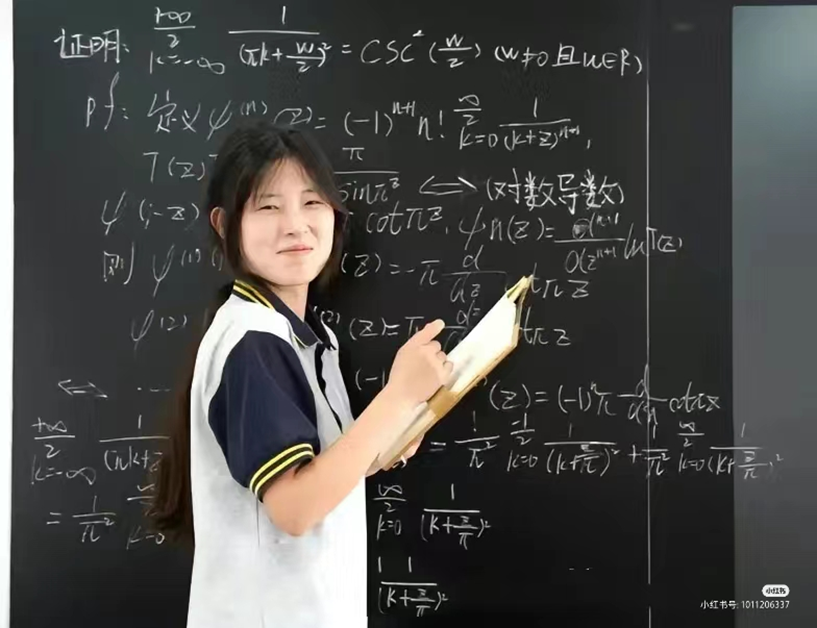 证明: +∞ Σ k=-∞ 1/(πk+w/2)² = csc²(w/2) (w≠0且w∈R)
pf: 定义ψ⁽ⁿ⁾(z)=(-1)ⁿ⁺¹n! ∞ Σ k=0 1/(k+z)ⁿ⁺¹,
T(z) π/sinπz ⟺ (对数导数)
ψ(1-z) cotπz, ψn(z)= dⁿ⁺¹/dzⁿ⁺¹ lnT(z)
则 ψ⁽¹⁾( (z)=-π d/dz tπz
ψ⁽²⁾ ⁽²⁾(z)=π tπz
⟺ ... (-1) (z)=(-1)ⁿπ d/dzⁿ cotπz
+∞ Σ k=-∞ 1/(πk+z = 1/π² -1 Σ k=0 1/(k+z/π)² + 1/π² ∞ Σ k=0 1/(k+z/π)²
= 1/π² k=0 ∞ Σ k=0 1/(k+z/π)²
1/(k+z/π)²
小红书
小红书号: 1011206337